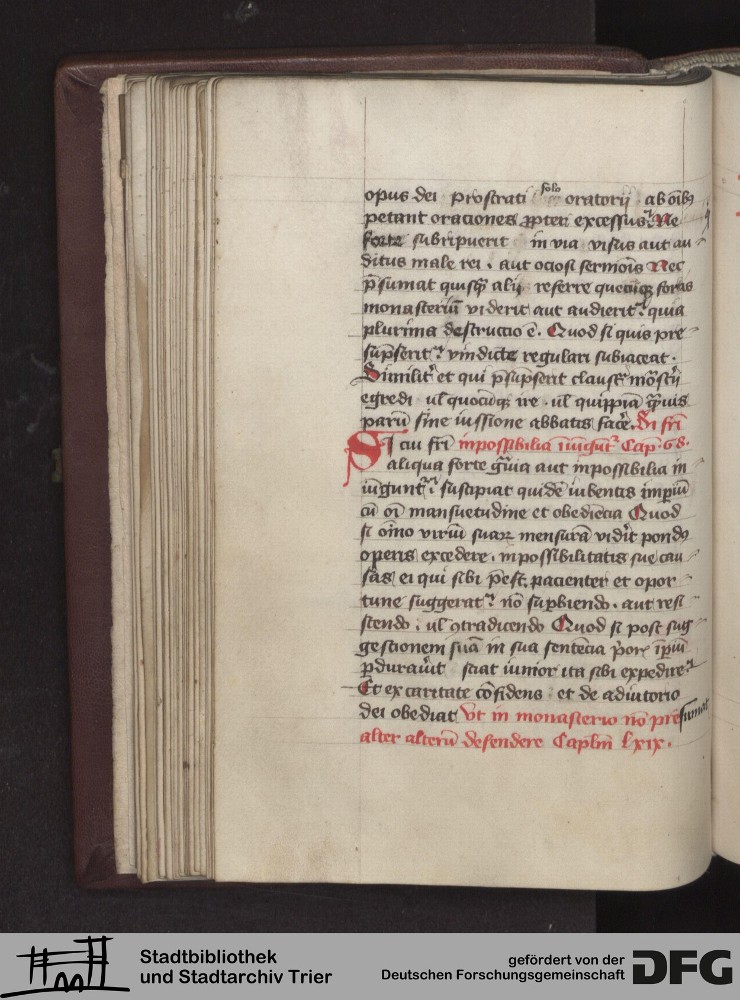 opus dei prostrati solo oratorij ab oĩbꝫ
petant orationes ꝓpter excessus Ne
forte subripuerit in via visus aut au
ditus male rei . aut ociosi sermoĩs Nec
p̃sumat quisq̃ʒ alij referre quecũqʒ foras
monasteriũ viderit aut audierit quia
plurima destructio ẽ . Quod si quis pre
sũpserit vindicte regulari subiaceat .
Similit᷑ et qui p̃sũpserit claustr̃ mõstrij
egredi ul̃ quocũqʒ ire . ul̃ quippiã q̃uis
parũ sine iussione abbatis fac̃e . Si fr̃i
Si cui fr̃i inpossibilia iniũgũt᷑ Cap . 68 .
aliqua forte g̃uia aut inpossibilia in
iũgunt᷑ suscipiat quidẽ iubentis imp̃iũ
cũ oĩ mansuetudine et obediẽcia Quod
si oĩno viriũ suaꝝ mensurã vid̃it pondꝰ
operis excedere . inpossibilitatis sue cau
sas ei qui sibi p̃est . pacienter et opor
tune suggerat nõ suꝑbiendo . aut resi
stendo . ul̃ ꝯtradicendo Quod si post sug
gestionem suã in sua sentẽcia p̃oris ip̃iũ
ꝑdurau̾it sciat iunior ita sibi expedire
Et ex caritate cõfidens et de adiutorio
dei obediat Vt in monasterio nõ presumat
alter alterũ defendere Cap̃lm̃ lxix .
Stadtbibliothek
und Stadtarchiv Trier
gefördert von der
Deutschen Forschungsgemeinschaft
DFG